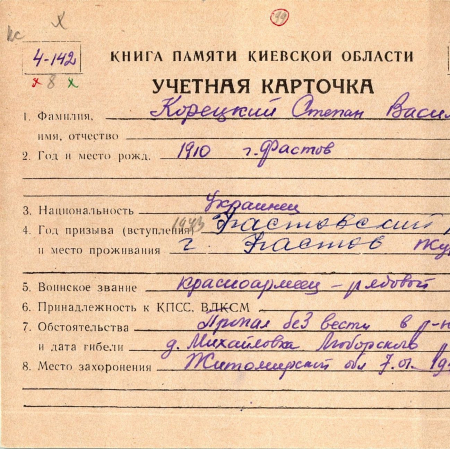 19
КС X
4-142
КНИГА ПАМЯТИ КИЕВСКОЙ ОБЛАСТИ
х 8 х
УЧЕТНАЯ КАРТОЧКА
1. Фамилия, Корецкий Степан Васил
имя, отчество
2. Год и место рожд. 1910 г. Фастов
3. Национальность Украинец
4. Год призыва (вступления) 1943 Фастовский
и место проживания г. Фастов
5. Воинское звание красноармеец - рядовой
6. Принадлежность к КПСС, ВЛКСМ
7. Обстоятельства Пропал без вести в р-н
и дата гибели д. Михайловка
8. Место захоронения Житомирской обл 7.01.